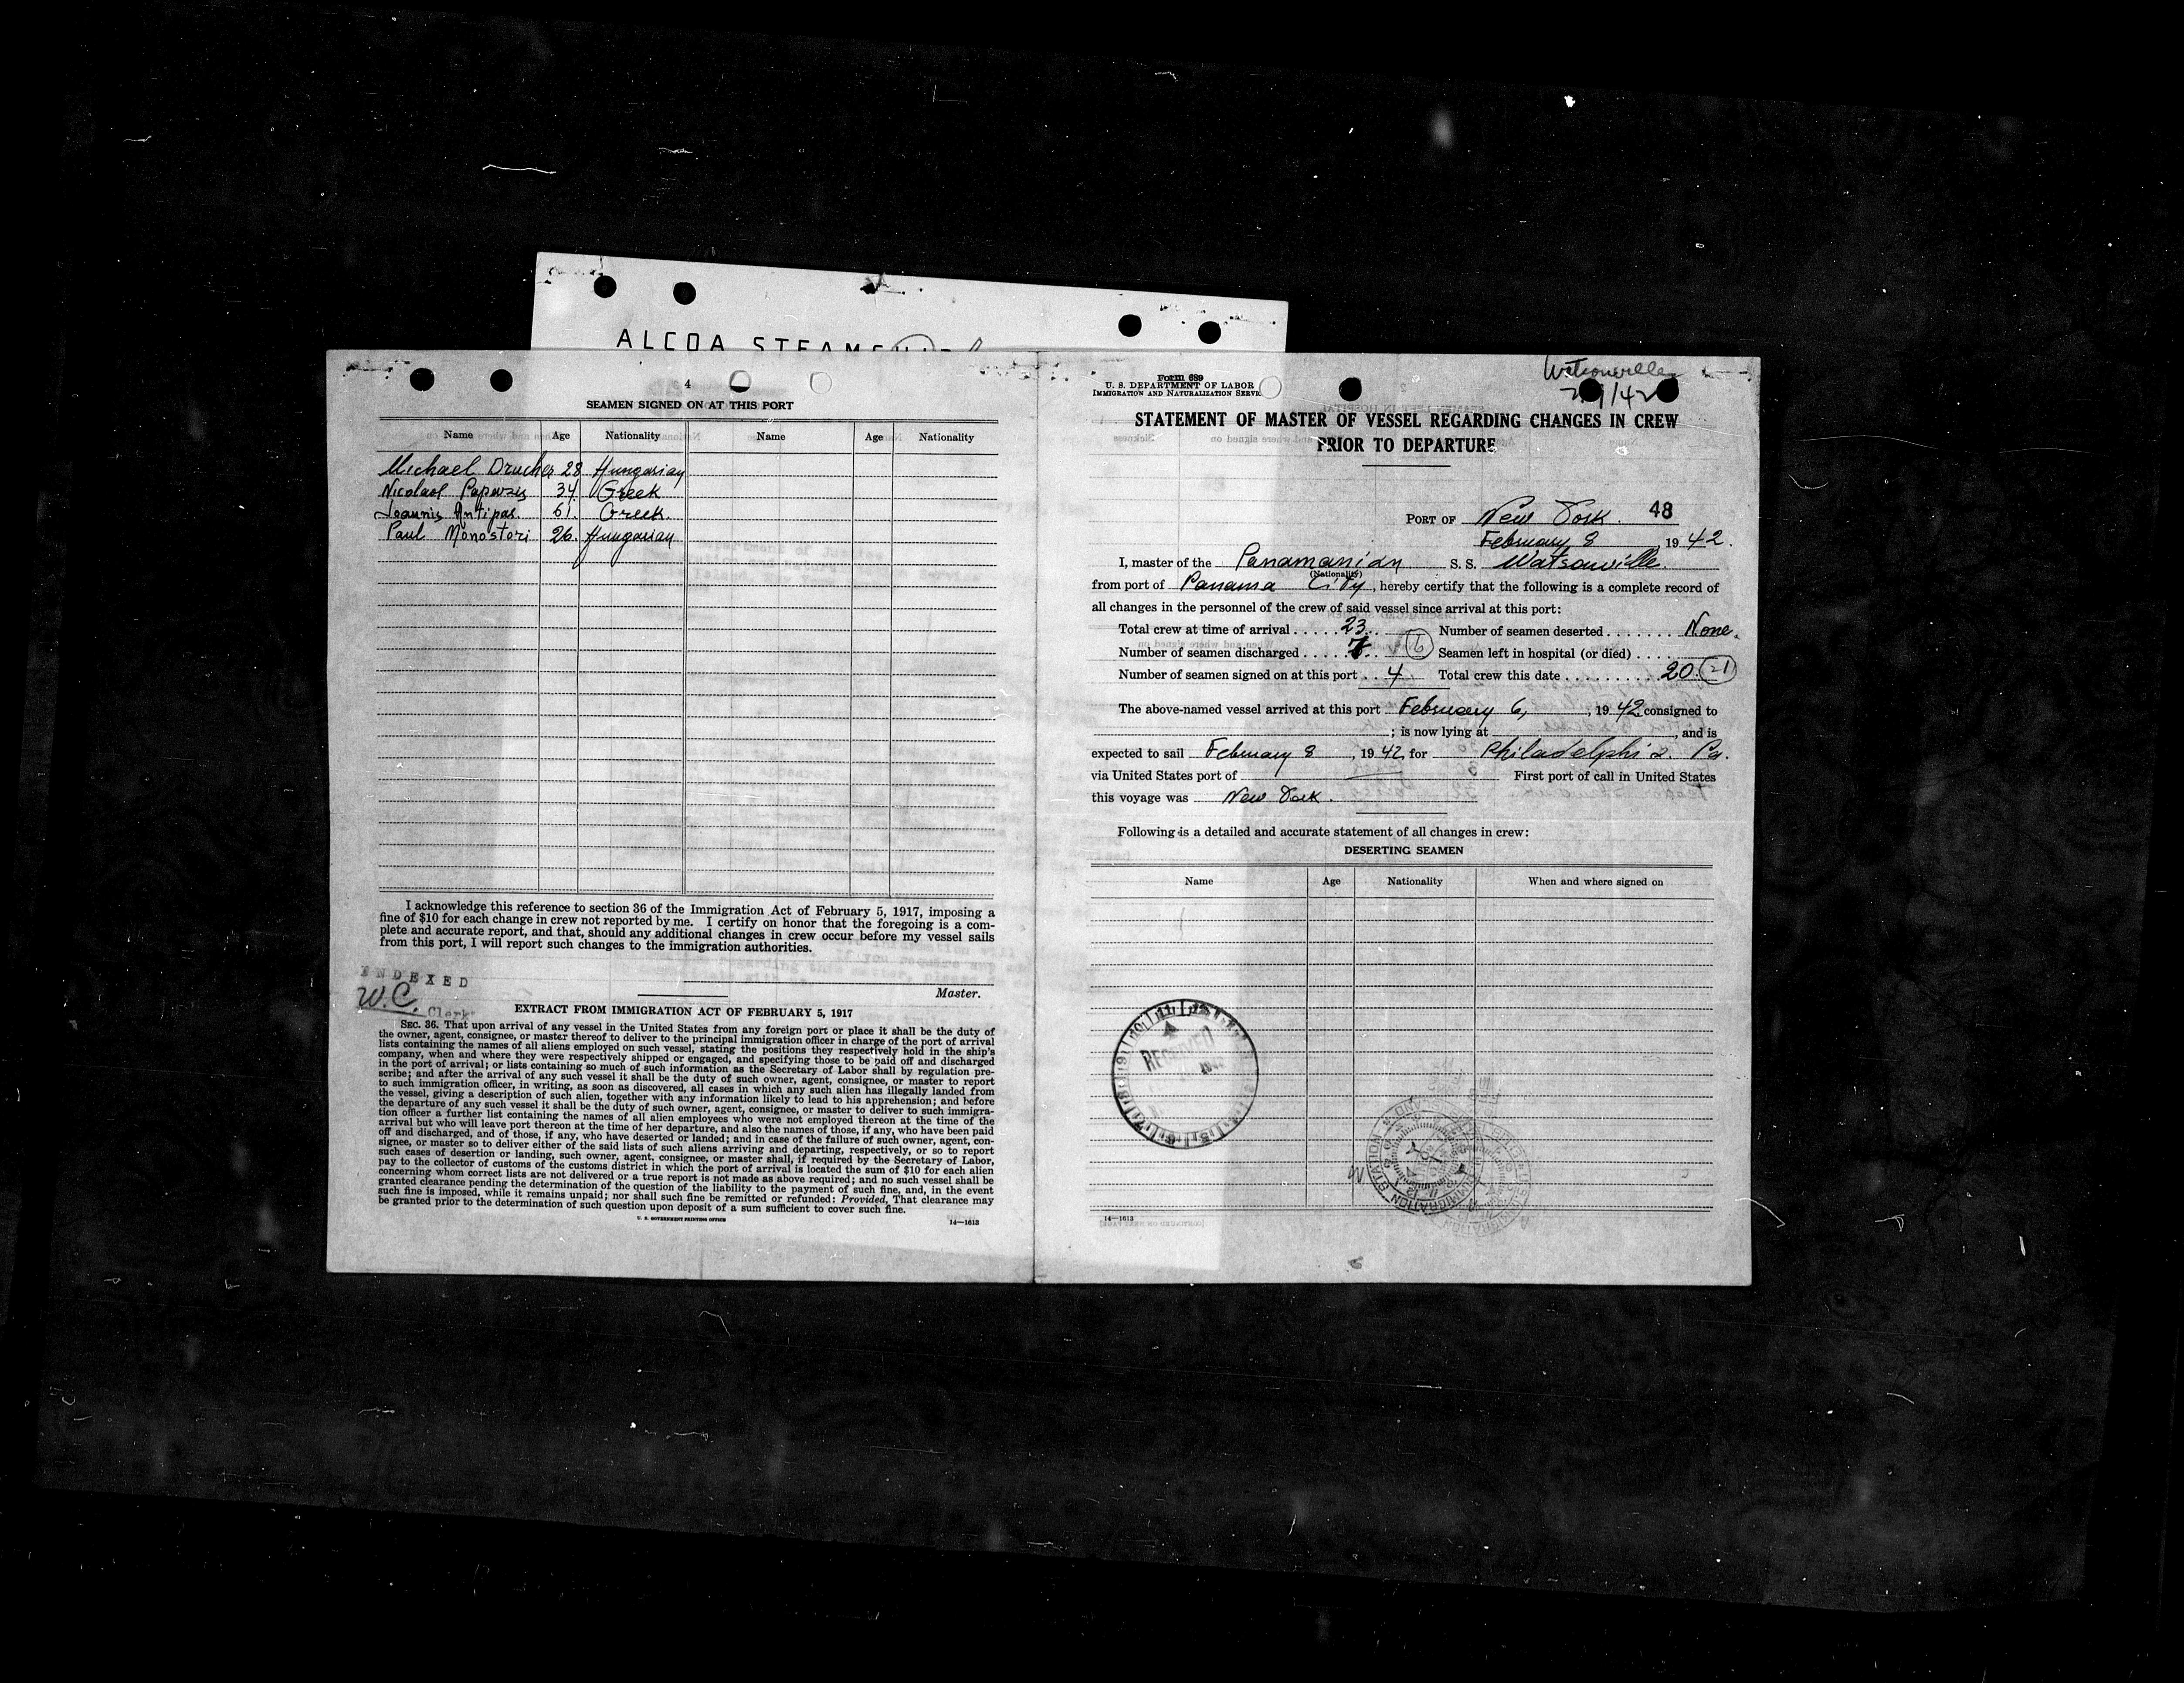 ALCOA STEAMSHIP
4
SEAMEN SIGNED ON AT THIS PORT
Name Age Nationality Name Age Nationality
Michael Drucker 28 Hungarian
Nicolaos 34 Greek
Joannis Antipas. 61. Greek.
Paul Monostori 26. Hungarian
I acknowledge this reference to section 36 of the Immigration Act of February 5, 1917, imposing a
fine of $10 for each change in crew not reported by me. I certify on honor that the foregoing is a com-
plete and accurate report, and that, should any additional changes in crew occur before my vessel sails
from this port, I will report such changes to the immigration authorities.
INDEXED
W.C. Clerk
Master.
EXTRACT FROM IMMIGRATION ACT OF FEBRUARY 5, 1917
SEC. 36. That upon arrival of any vessel in the United States from any foreign port or place it shall be the duty of
the owner, agent, consignee, or master thereof to deliver to the principal immigration officer in charge of the port of arrival
lists containing the names of all aliens employed on such vessel, stating the positions they respectively hold in the ship's
company, when and where they were respectively shipped or engaged, and specifying those to be paid off and discharged
in the port of arrival; or lists containing so much of such information as the Secretary of Labor shall by regulation pre-
scribe; and after the arrival of any such vessel it shall be the duty of such owner, agent, consignee, or master to report
to such immigration officer, in writing, as soon as discovered, all cases in which any such alien has illegally landed from
the vessel, giving a description of such alien, together with any information likely to lead to his apprehension; and before
the departure of any such vessel it shall be the duty of such owner, agent, consignee, or master to deliver to such immigra-
tion officer a further list containing the names of all alien employees who were not employed thereon at the time of the
arrival but who will leave port thereon at the time of her departure, and also the names of those, if any, who have been paid
off and discharged, and of those, if any, who have deserted or landed; and in case of the failure of such owner, agent, con-
signee, or master so to deliver either of the said lists of such aliens arriving and departing, respectively, or so to report
such cases of desertion or landing, such owner, agent, consignee, or master shall, if required by the Secretary of Labor,
pay to the collector of customs of the customs district in which the port of arrival is located the sum of $10 for each alien
concerning whom correct lists are not delivered or a true report is not made as above required; and no such vessel shall be
granted clearance pending the determination of the question of the liability to the payment of such fine, and, in the event
such fine is imposed, while it remains unpaid; nor shall such fine be remitted or refunded: Provided, That clearance may
be granted prior to the determination of such question upon deposit of a sum sufficient to cover such fine.
U. S. GOVERNMENT PRINTING OFFICE 14—1613
Form 689
U. S. DEPARTMENT OF LABOR
IMMIGRATION AND NATURALIZATION SERVICE
Watsonville
2/9/42
STATEMENT OF MASTER OF VESSEL REGARDING CHANGES IN CREW
PRIOR TO DEPARTURE
PORT OF New York. 48
February 8 , 19 42.
I, master of the Panamanian S. S. Watsonville.
(Nationality)
from port of Panama City, hereby certify that the following is a complete record of
all changes in the personnel of the crew of said vessel since arrival at this port:
Total crew at time of arrival ..... 23. Number of seamen deserted ....... None.
Number of seamen discharged ..... 7. (6) Seamen left in hospital (or died) ....
Number of seamen signed on at this port .. 4. Total crew this date .......... 20. (21)
The above-named vessel arrived at this port February 6, , 19 42. consigned to
; is now lying at , and is
expected to sail February 8 , 19 42, for Philadelphia. Pa.
via United States port of First port of call in United States
this voyage was New York.
Following is a detailed and accurate statement of all changes in crew:
DESERTING SEAMEN
Name Age Nationality When and where signed on
RECEIVED
14—1613